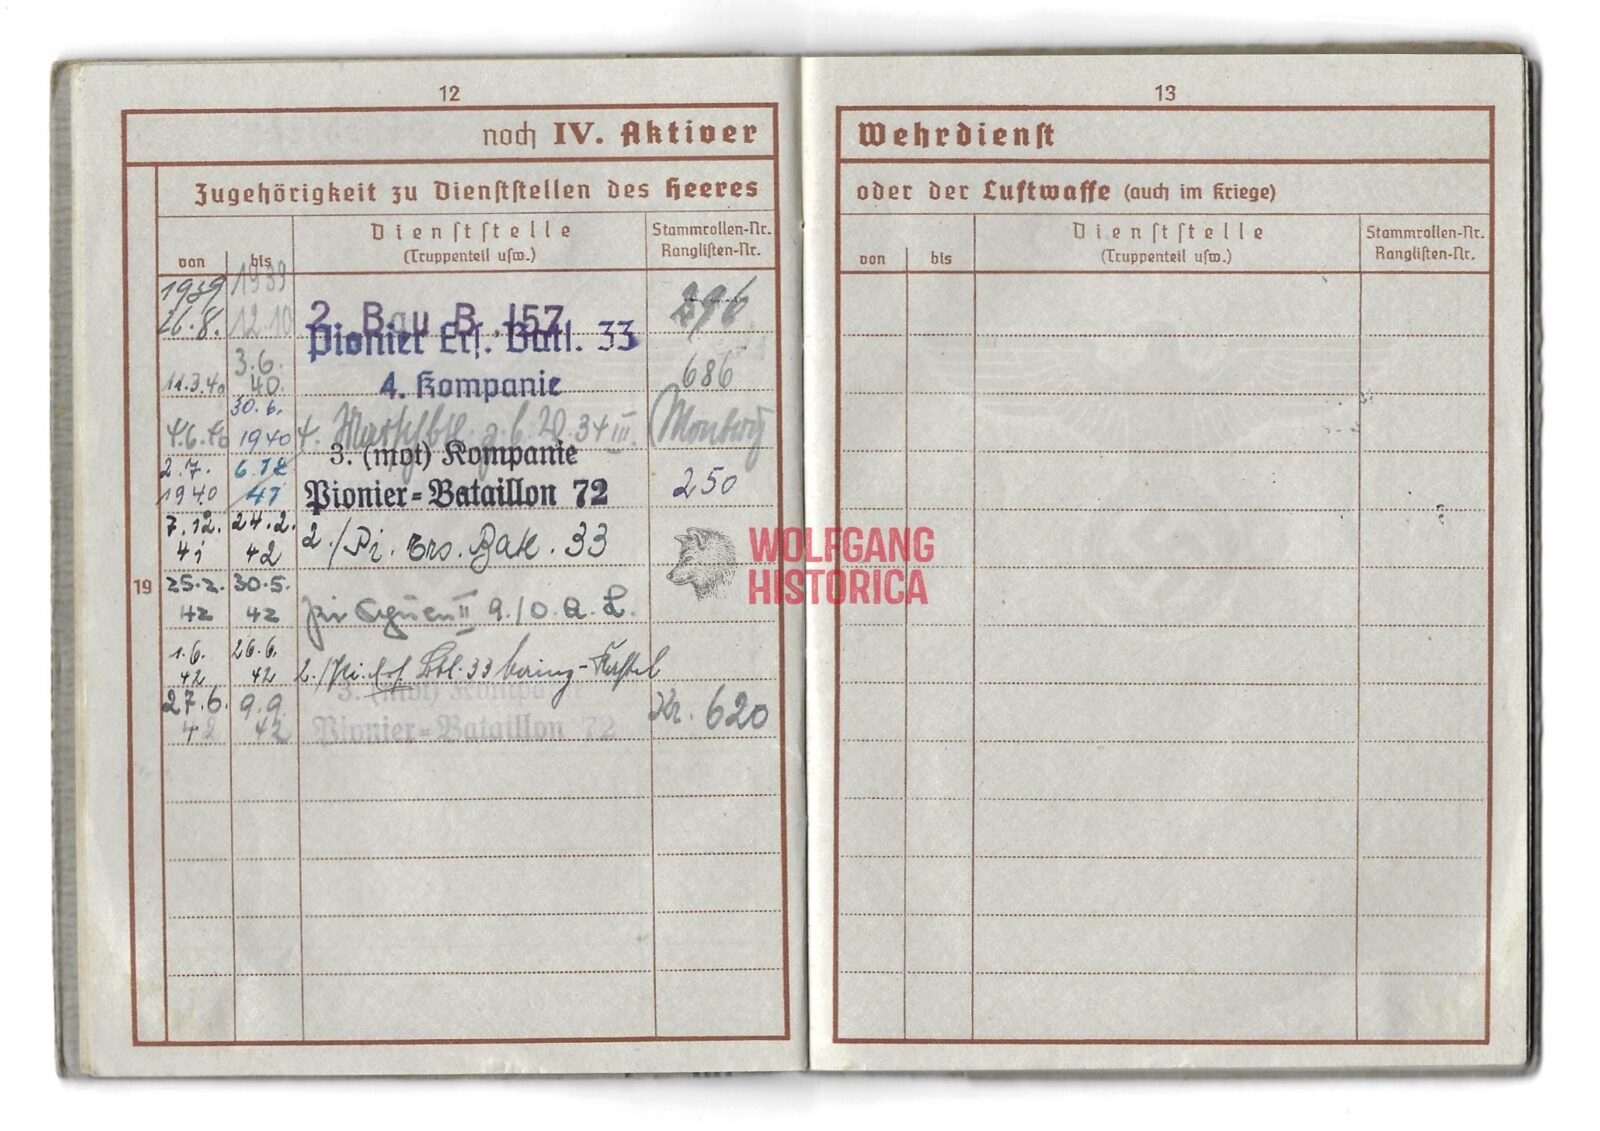 12
noch IV. Aktiver
Zugehörigkeit zu Dienststellen des Heeres
von bis Dienststelle (Truppenteil usw.) Stammrollen-Nr. Ranglisten-Nr.
1939 1939
26.8. 12.10 2. Bau B. 157 296
Pionier Ers. Batl. 33
11.3.40 3.6. 40. 4. Kompanie 686
4.6.40 30.6. 1940 4. Marschbtl. z.b.V. 34 III.
3. (mot) Kompanie
2.7. 1940 6.12 41 Pionier-Bataillon 72 250
7.12. 41 24.2. 42 2./Pi. Ers. Batl. 33
19
25.2. 42 30.5. 42 II 9./O. A. L.
1.6. 42 26.6. 42 2./Pi. Ers. Btl. 33
3. (mot) Kompanie
27.6. 42 9.9. 42 Pionier-Bataillon 72 Kr. 620
13
Wehrdienst
oder der Luftwaffe (auch im Kriege)
von bis Dienststelle (Truppenteil usw.) Stammrollen-Nr. Ranglisten-Nr.
WOLFGANG
HISTORICA